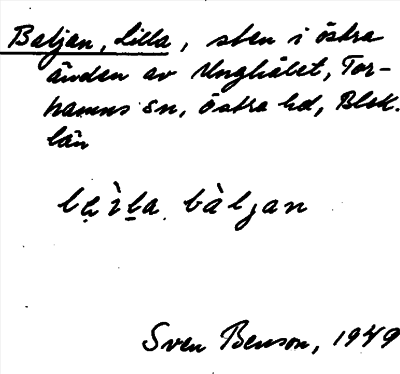 Baljan, Lilla, sten i östra
änden av Unghålet, Tor-
hamns sn, Östra hd, Blek.
län
bàljan
Sven Benson, 1949